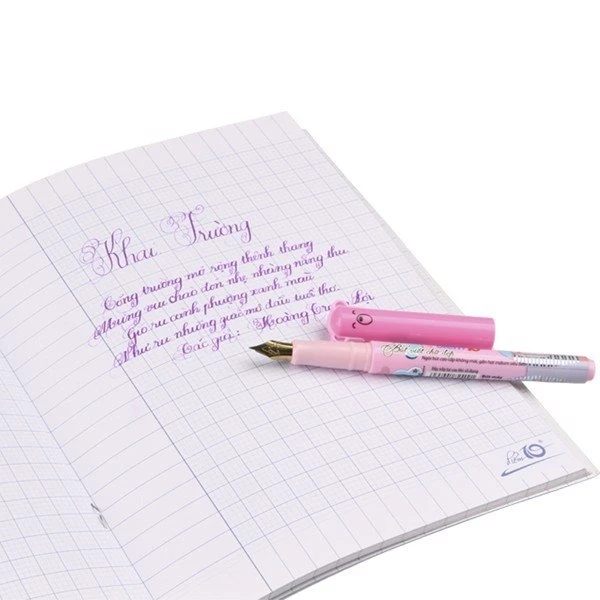 Khai Trường
Cổng trường mở rộng thênh thang
Mừng vui chào đón nhẹ nhàng nắng thu
Gió ru cành phượng xanh màu
Như ru những giấc mơ đầu tuổi thơ
Tác giả: Hoàng Lợi
Bút viết chữ đẹp
Điểm 10